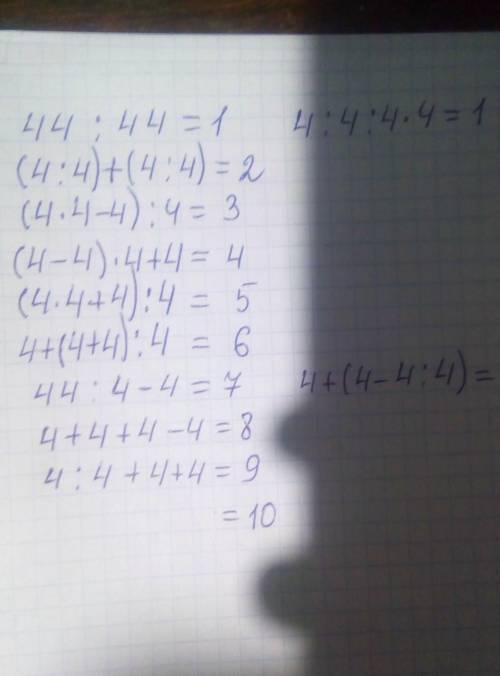 44 : 44 = 1
4 : 4 : 4 · 4 = 1
(4 : 4) + (4 : 4) = 2
(4 · 4 - 4) : 4 = 3
(4 - 4) · 4 + 4 = 4
(4 · 4 + 4) : 4 = 5
4 + (4 + 4) : 4 = 6
44 : 4 - 4 = 7
4 + (4 - 4 : 4) =
4 + 4 + 4 - 4 = 8
4 : 4 + 4 + 4 = 9
= 10